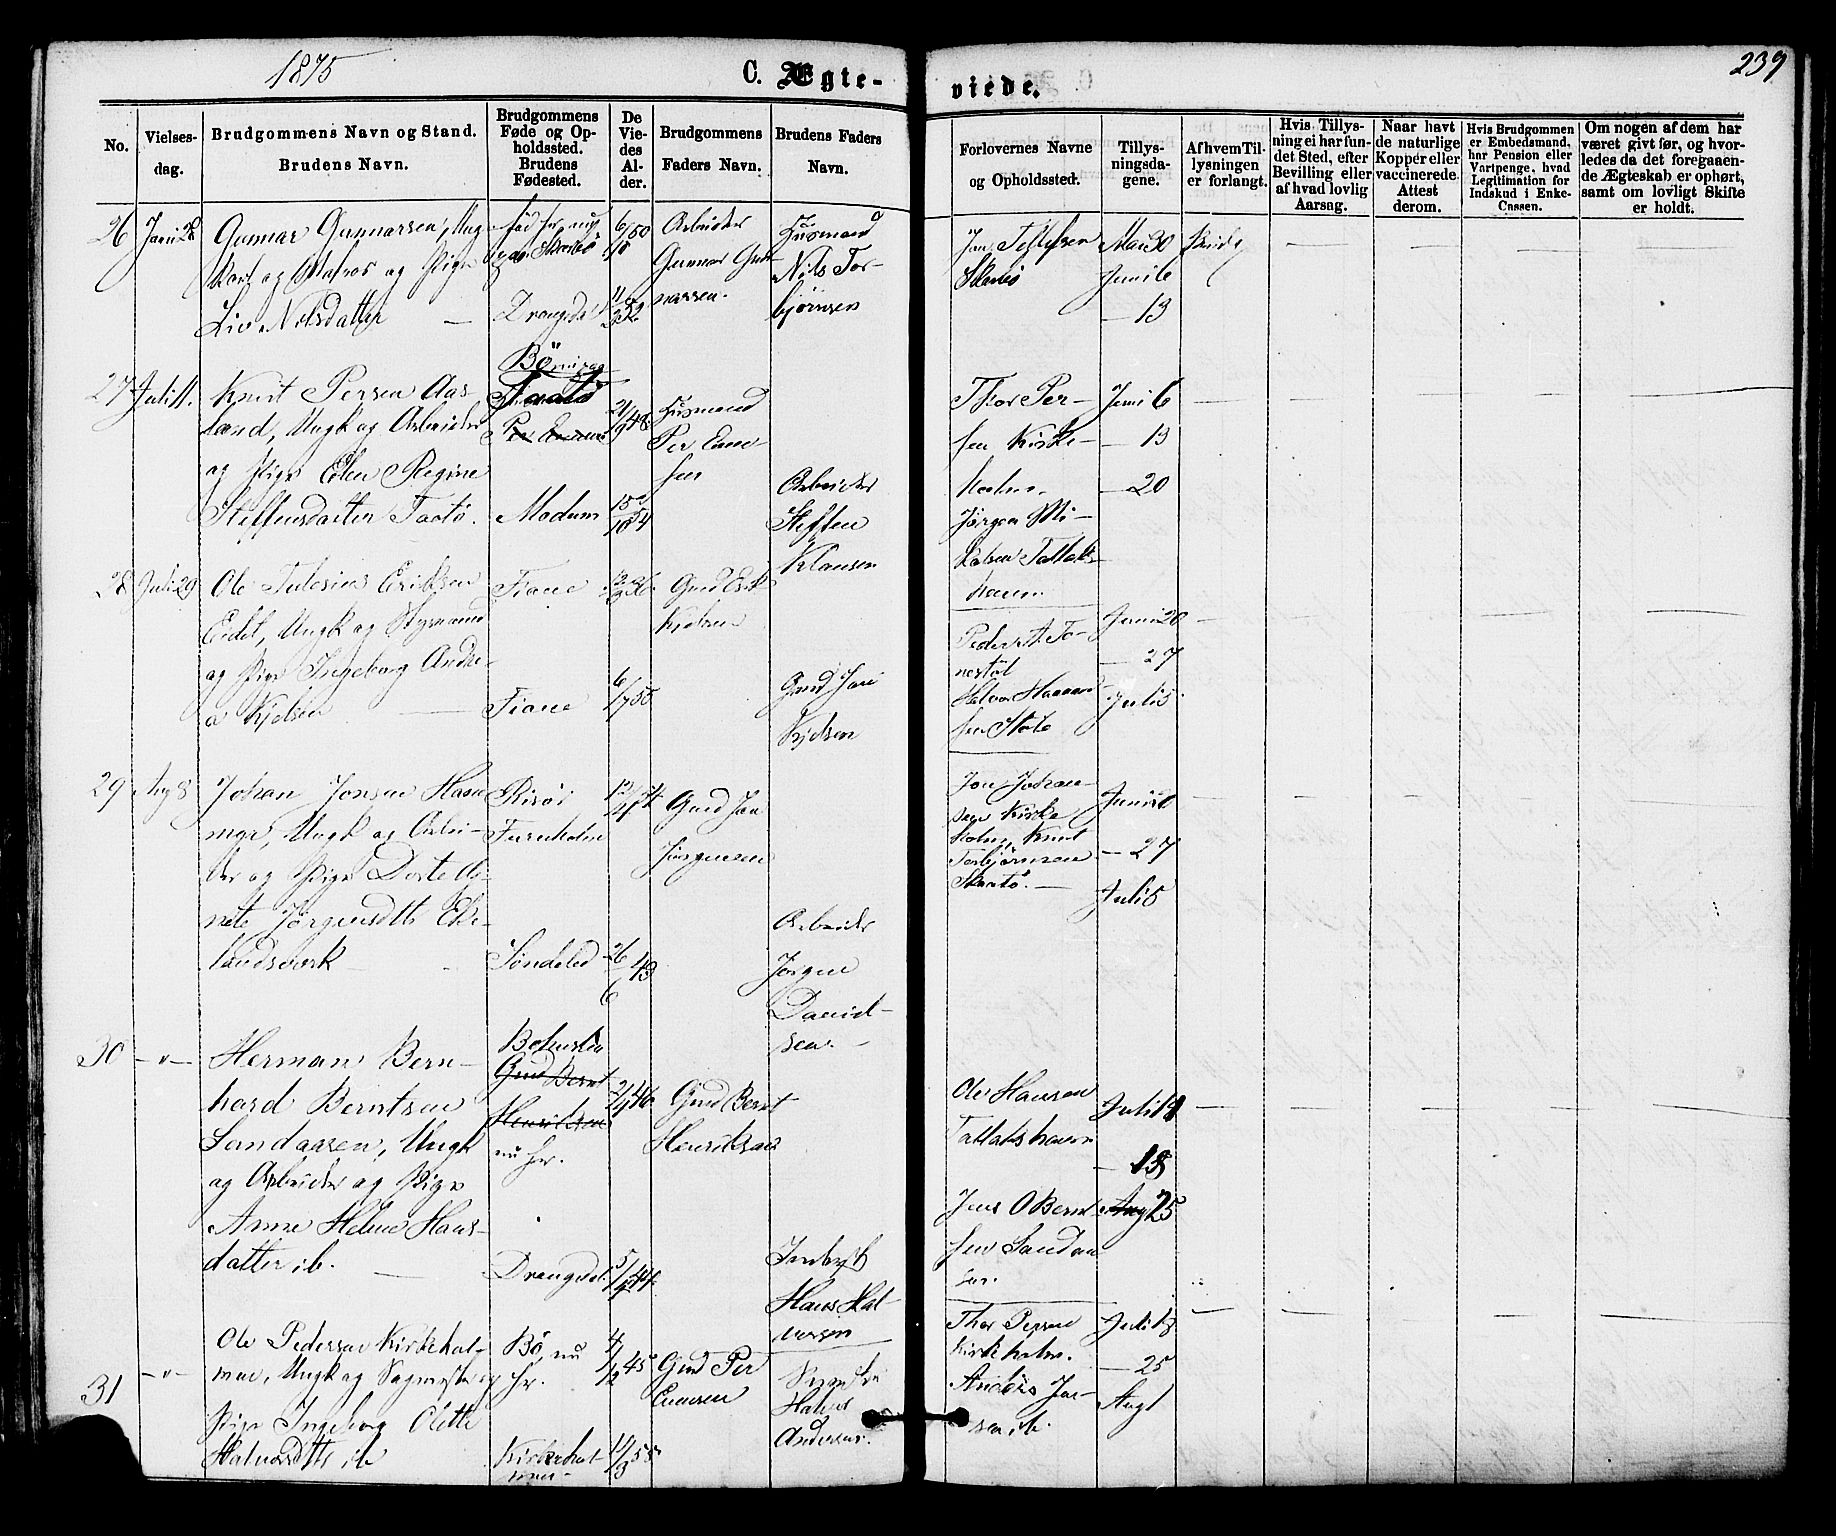 1875
C. Ægte-
viede.
239
No.
Vielses-
dag.
Brudgommens Navn og Stand.
Brudens Navn.
Brudgommens
Føde og Op-
holdssted.
Brudens
Fødested.
De
Vie-
des
Al-
der.
Brudgommens
Faders Navn.
Brudens Faders
Navn.
Forlovernes Navne
og Opholdssted.
Tillys-
ningsda-
gene.
Af hvem Til-
lysningen
er forlangt.
Hvis Tillys-
ning ei har fun-
det Sted, efter
Bevilling eller
af hvad lovlig
Aarsag.
Naar havt
de naturlige
Kopper eller
vaccinerede.
Attest
derom.
Hvis Brudgommen
er Embedsmand,
har Pension eller
Vartpenge, hvad
Legitimation for
Indskud i Enke-
Cassen.
Om nogen af dem har
været givt før, og hvor-
ledes da det foregaaen-
de Ægteskab er ophørt,
samt om lovligt Skifte
er holdt.
26
Gunnar Gunnarsen, Ung
og Pige
Liv Nilsdatter
Drangedal
6/10 50
11/2 52
Arbeider
Gunnar Gun-
narsen.
Husmand
Nils Tor-
bjørnsen
Jan Tellefsen
Skaatø
Mai 30
Juni 6
— 13
27 Juli 11.
Knut Persen Aas-
land, Ungk og Arbeider
og Pige Elen Regine
Steffensdatter Taatø.
Taatø
Madum
21/9 48
15/10 54
Husmand
Per Enne
sen
Arbeider
Steffen
Klausen
Thor Per-
sen Kirke-
holm.
Jørgen Mi-
kalsen Tallaks-
havn.
Juni 6
— 13
— 20
28 Juli 29
Ole Tulesius Eriksen
Eidet, Ungk og Styrmand
og Pige Ingeborg Andre-
a Kjelsen
Fiane
Fiane
6/7 50
Gmd Erik
Kjelsen
Gmd Jan
Kjelsen
Peder A. To-
nestøl
Halvor Hannan-
sen Støle
Juni 20
— 27
Juli 5
29 Aug 8
Johan Jonsen Ham
mer, Ungk og Arbei-
der og Pige Dorte Ile-
nete Jørgensdtr Eke-
landsverk
Risør
Furuholm
Søndeled
26/6 43
Gmd Jan
Jørgensen
Arbeider
Jørgen
David-
sen.
Jon Johan-
sen Kirke
holm, Knut
Torbjørnsen
Skaatø. —
— 27
Juli 5
30 — " —
Herman Bern-
hard Berntsen
Sandaasen, Ungk
og Arbeider og Pige
Anne Helene Hans-
datter ib.
Gmd Bernt
Henriksen
nu hr.
Drangedal
2/9 46
Gmd Bernt
Henriksen
Inderst
Hans Hal-
vorsen
Ole Hansen
Tallakshavn
Jens O Bernt-
sen Sandaa
sen.
Juli 4
— 18
Aug 25
31
— " —
Ole Pedersen Kirkehol-
men, Ungk og Sagmester og
Pige Ingeborg Olette
Halvorsdtr ib
Bø, nu
hr.
Kirkehol-
men.
4/12 45
Gmd Per
Ennesen
Halvor
Andersen.
Thor Persen
Kirkeholm.
Anders Jan-
sen ib.
Juli 18
— 25
Aug 1